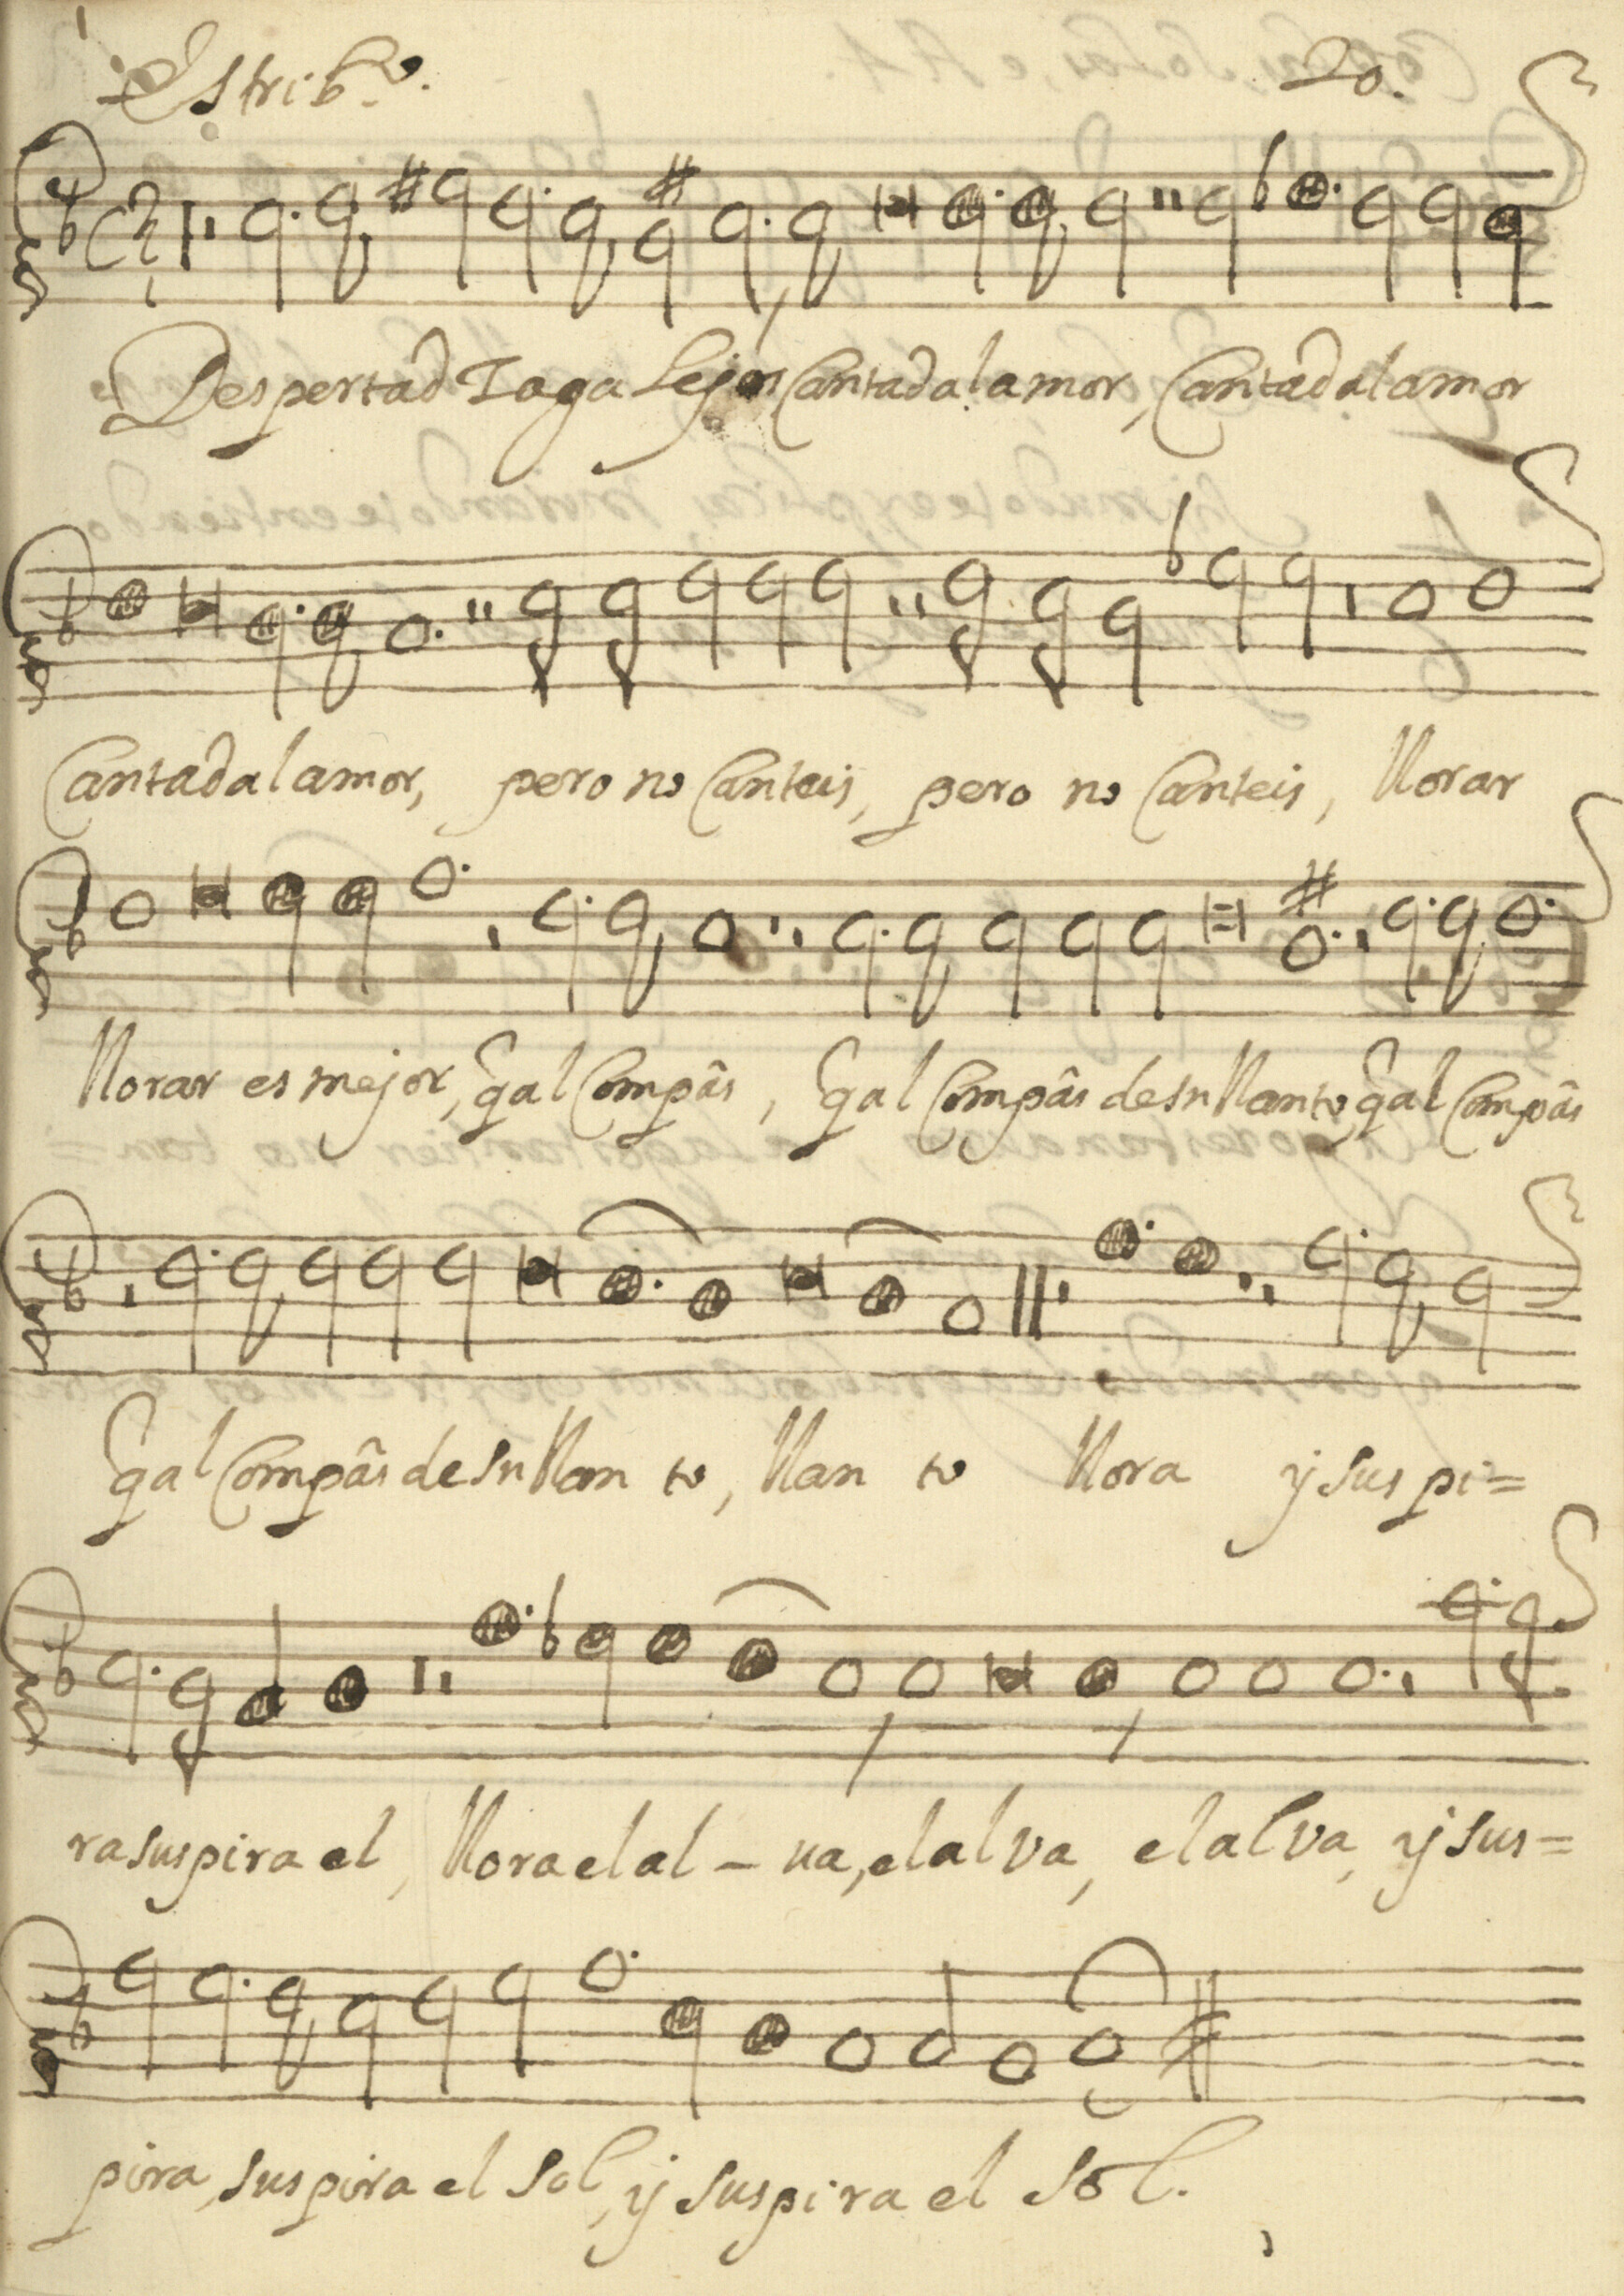 Estrib.º 20.
Despertad Zagalejos, Cantad al amor, Cantad al amor
Cantad al amor, pero no Canteis, pero no Canteis, llorar
llorar es mejor, q̃ al Compâs, q̃ al Compâs de su llanto, q̃ al Compâs
q̃ al Compâs de su llan to, llan to llora y sus pi=
ra suspira el, llora el al - va, el alva, el alva, y sus=
pira, suspira el Sol, y suspira el Sol.